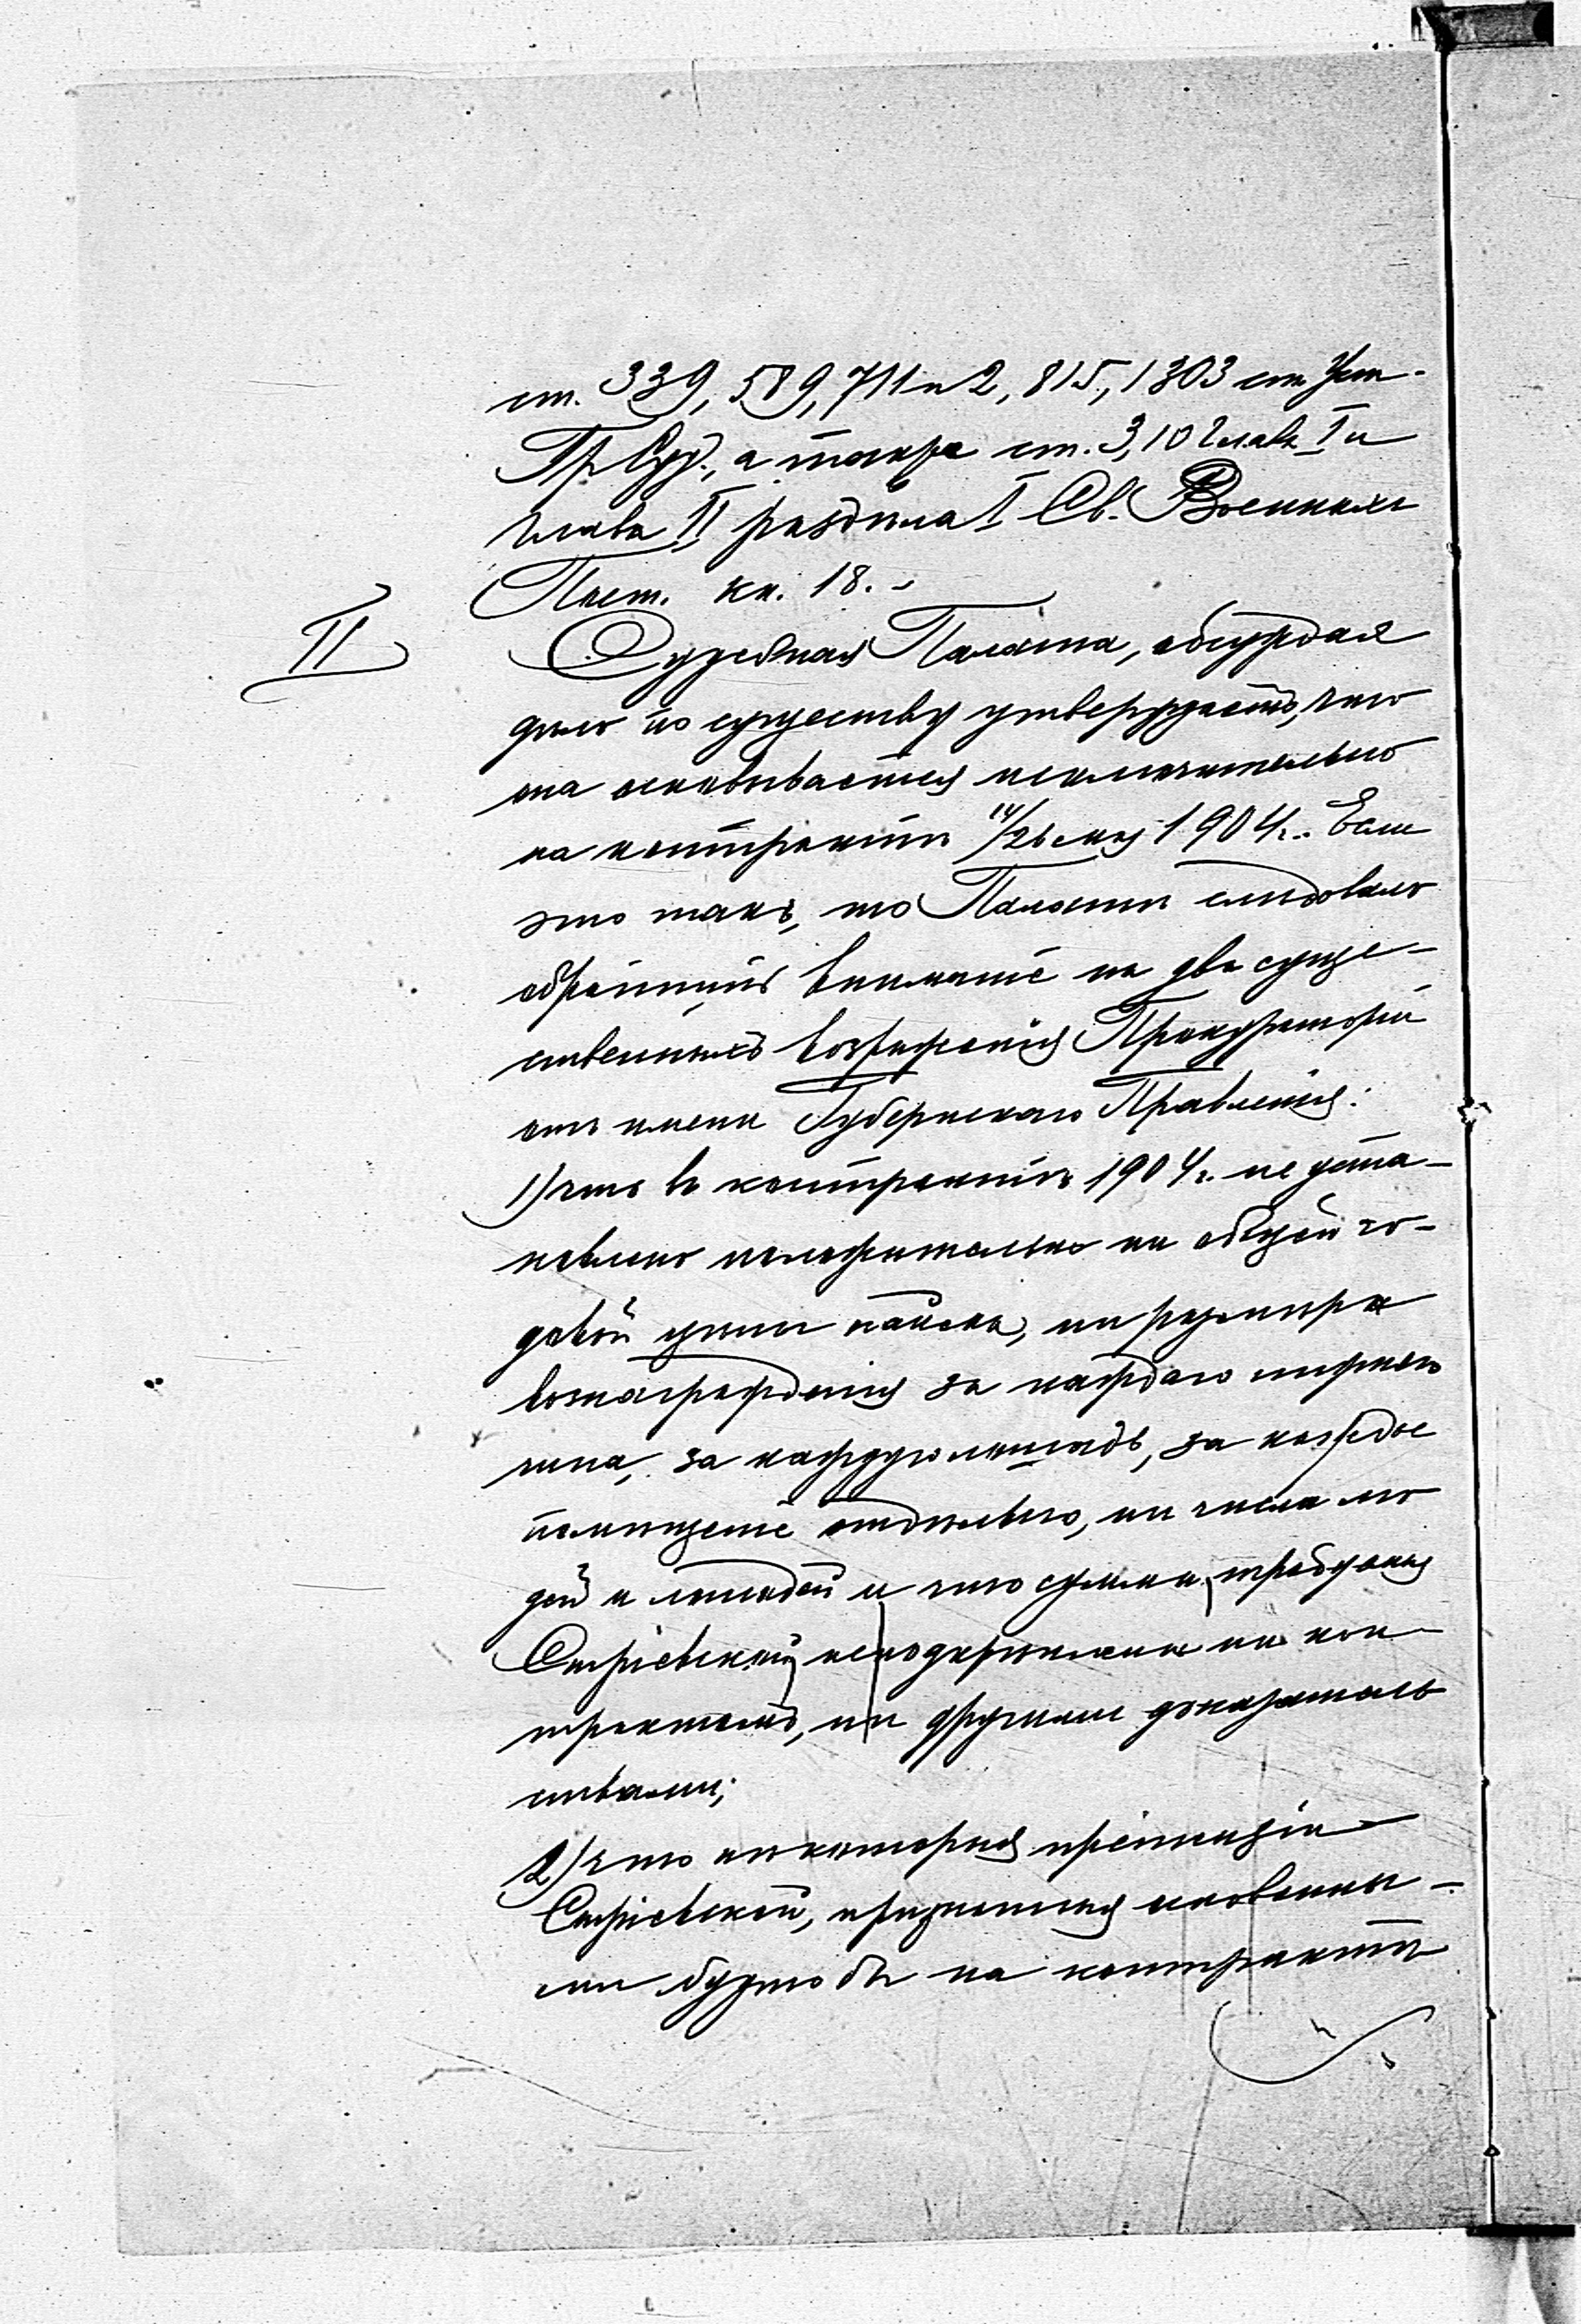 ст. 339, 589, 711 п 2, 815, 1303 ст Уст.
Гр Суд., а также ст. 3, 10 Главы I и
глава II раздѣла I Св. Военныхъ
Пост. кн. 18.
II
Судебная Палата, обсуждая
дѣло по существу утверждаетъ, что
она основывается исключительно
на контрактѣ 14/26 мая 1904 г. Если
это такъ, то Палатѣ слѣдовало
обратить вниманіе на два суще-
ственныхъ возраженія Прокураторіи
отъ имени Губернскаго Правленія:
1) что въ контрактѣ 1904 г. не уста-
новлено положительно ни общей го-
довой цѣны найма, ни размѣра
вознагражденія за каждаго нижняго
чина, за каждую лошадь, за каждое
помѣщеніе отдѣльно, ни числа лю
дей и лошадей и что сумма, требуемая
Сърiевской неподкрѣплена ни кон-
трактомъ, ни другими доказатель
ствами;
2) что нѣкоторыя претензіи
Сърiевской, признанныя основанны-
ми будто бы на контрактѣ